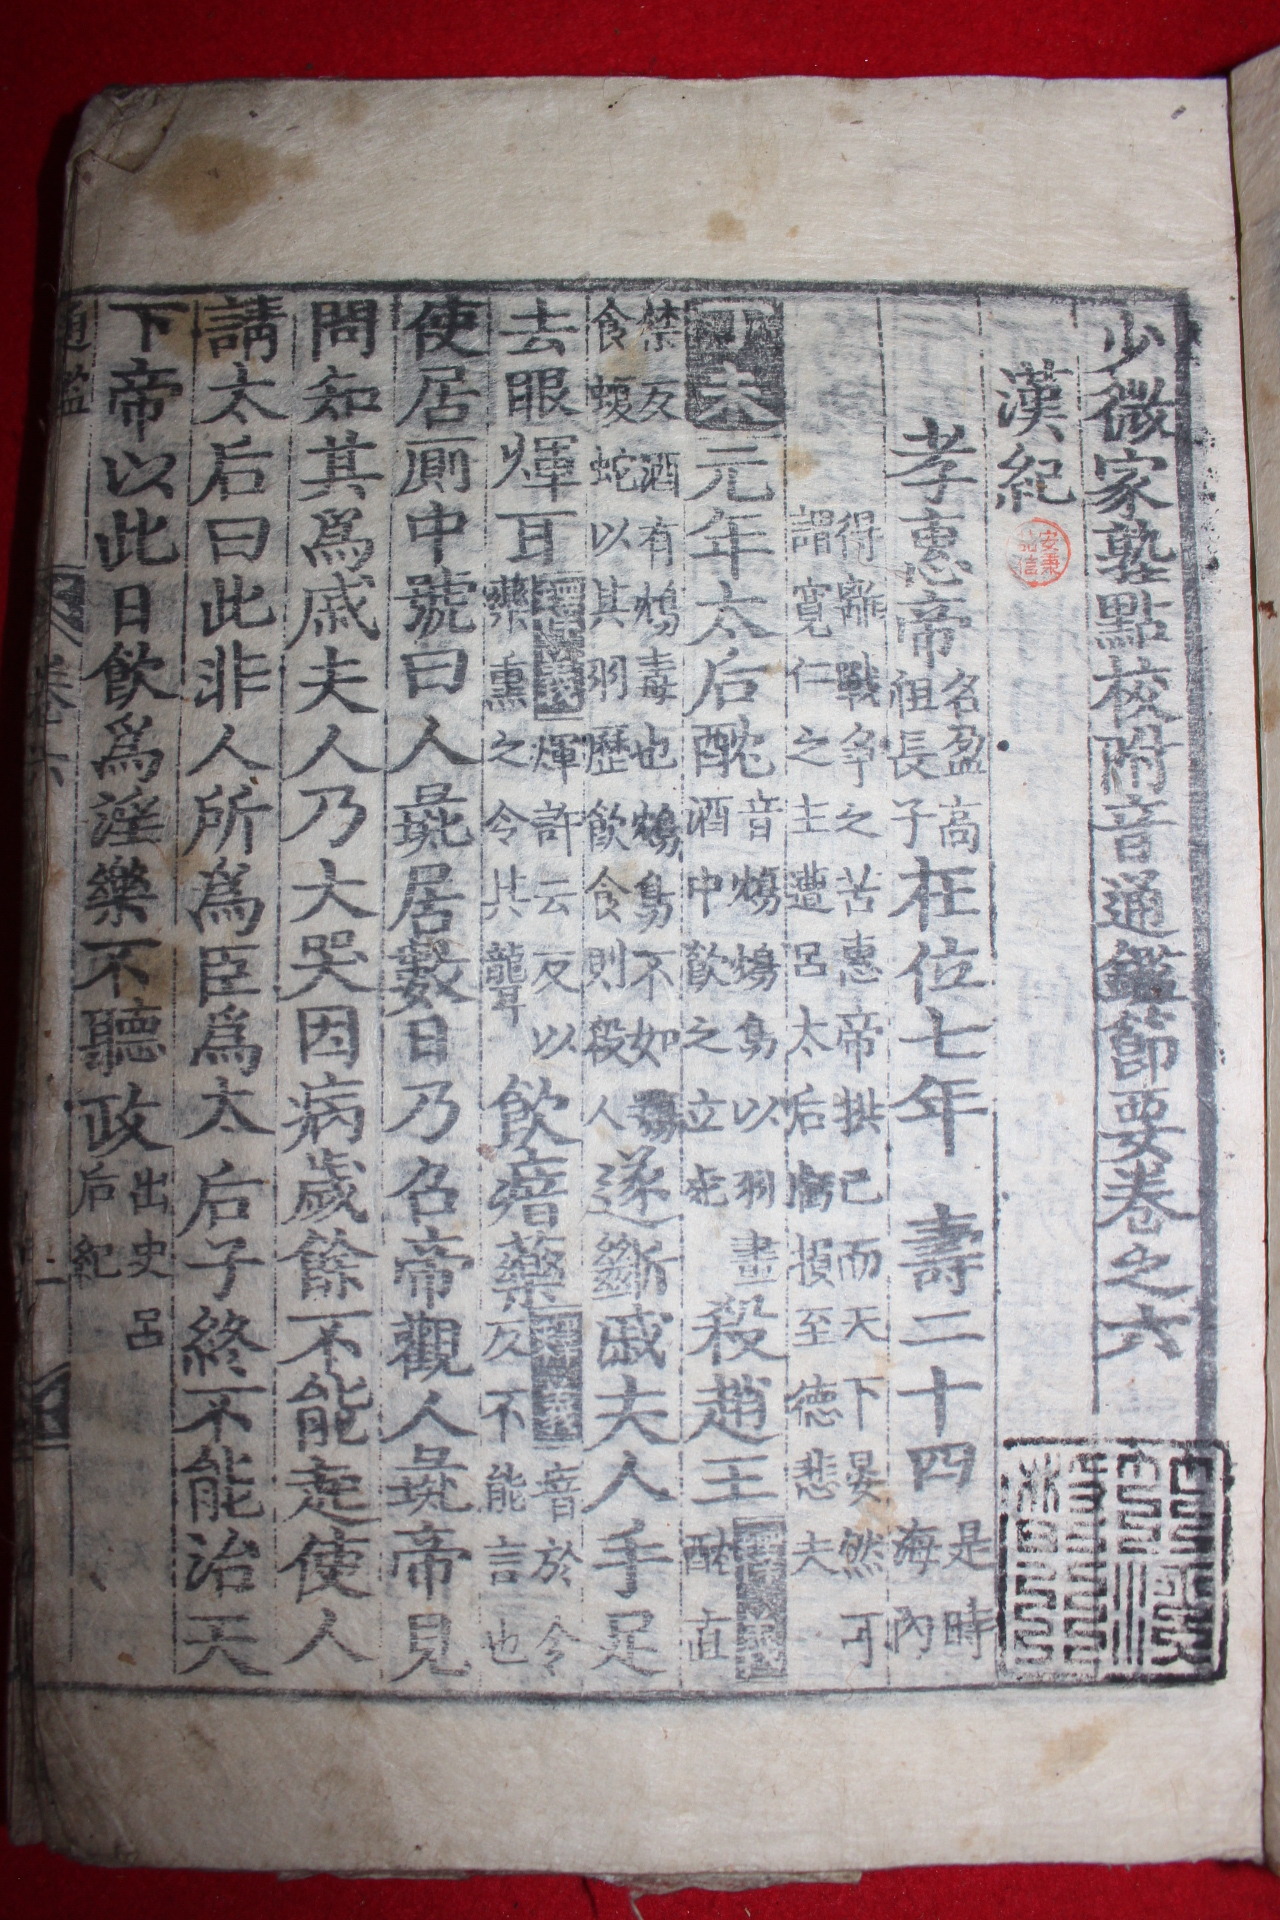 少微家塾點校附音通鑑節要卷之六
漢紀
孝惠帝名盈高祖長子在位七年 壽二十四是時海內
得離戰爭之苦惠帝拱己而天下晏然可謂寬仁之主遭呂太后虧損至德悲夫
丁未元年太后酖音鴆鴆鳥以羽畫酒中飮之立死殺趙王釋義酖直
禁反酒有鴆毒也鴆鳥不如食蝮蛇以其羽歷飮食則殺人遂斷戚夫人手足
去眼煇耳釋義煇許云反以藥熏之令共聾飮瘖藥釋義音於今反不能言也
使居厠中號曰人彘居數日乃召帝觀人彘帝見
問知其爲戚夫人乃大哭因病歲餘不能起使人
請太后曰此非人所爲臣爲太后子終不能治天
下帝以此日飮爲淫樂不聽政出史呂后紀
通鑑 卷六 一